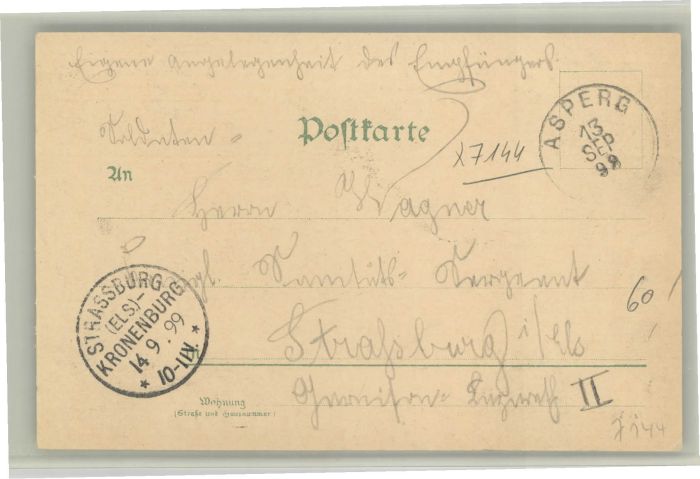 Eigene Angelegenheit des Empfängers.
Soldaten-
Postkarte
X7144
ASPERG
13
SEP
99
An
Herrn Wagner
Kgl. Sanitäts-Sergeant
Straßburg i/Els
Garnison-Lazareth II
60
STRASSBURG
(ELS)-
KRONENBURG
14 9. 99
10-11V
Wohnung
(Straße und Hausnummer)
7144